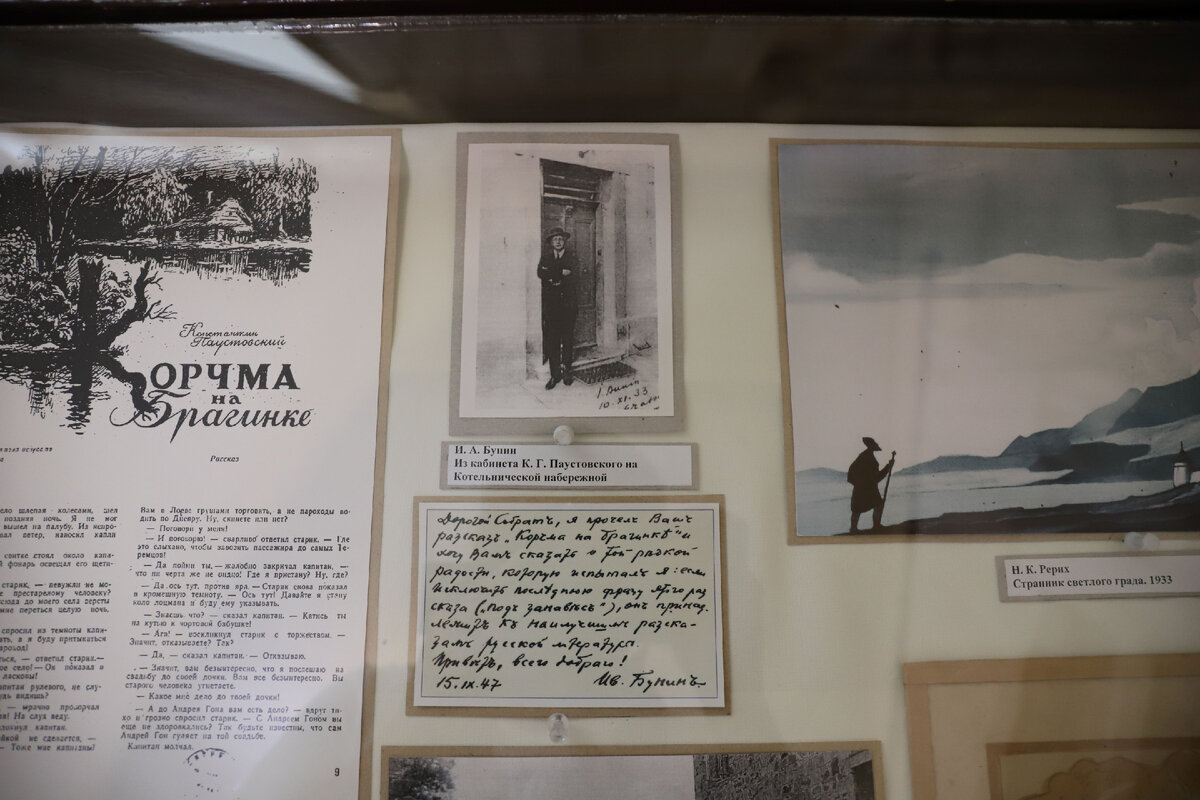 Константин
Паустовский
КОРЧМА
на
Брагинке
Рассказ
ело шлепая колесами, шел
поздняя ночь. Я не мог
вышел на палубу. Из непро-
вал ветер, наносил капли
свитке стоял около капи-
й фонарь освещал его щети-
старик, — певужли не мо-
е престарелому человеку?
сюда до моего села версты
мне переться целую ночь,
спросил из темноты капи-
ать, а я буду притыкаться
пароход!
ться, — ответил старик.—
ое село!— Он показал в
ласковы!
апитан рулевого, не слу-
удь видишь?
— мрачно проворчал
ая! На слух веду.
кликнул капитан.
йкой не сделается, —
— Тоже мне капитаны!
Вам в Лоеве грушами торговать, а не пароходы во-
дить по Днепру. Ну, скинете или нет?
— Поговори у меня!
— И поговорю! — сварливо ответил старик. — Где
это слыхано, чтобы завозить пассажира до самых Те-
ремцов!
— Да пойми ты,— жалобно закричал капитан, —
что ни черта же не видно! Где я пристану? Ну, где?
— Да ось тут, против яра.— Старик снова показал
в кромешную темноту. — Ось тут! Давайте я стану
коло лоцмана и буду ему указывать.
— Знаешь что? — сказал капитан. — Катись ты
на кутью к чортовой бабушке!
— Ага! — воскликнул старик с торжеством. —
Значит, отказываете? Так?
— Да, — сказал капитан. — Отказываю.
— Значит, вам безынтересно, что я поспешаю на
свадьбу до своей дочки. Вам все безынтересно. Вы
старого человека угнетаете.
— Какое мне дело до твоей дочки!
— А до Андрея Гона вам есть дело? — вдруг ти-
хо и грозно спросил старик. — С Андреем Гоном вы
еще не здоровкались? Так будьте известны, что сам
Андрей Гон гуляет на той свадьбе.
Капитан молчал.
9
10.XI.33
И. А. Бунин
Из кабинета К. Г. Паустовского на
Котельнической набережной
Дорогой Собратъ, я прочелъ Вашъ
разсказъ „Корчма на Брагинкѣ“ и
хочу Вамъ сказать о той рѣдкой
радости, которую испыталъ я: если
исключить послѣднюю фразу этого раз
сказа („подъ занавѣсъ“), онъ принад.
лежитъ къ наилучшимъ разска-
замъ русской литературы.
Привѣтъ, всего добраго!
15.IX.47 Ив. Бунинъ
Н. К. Рерих
Странник светлого града. 1933